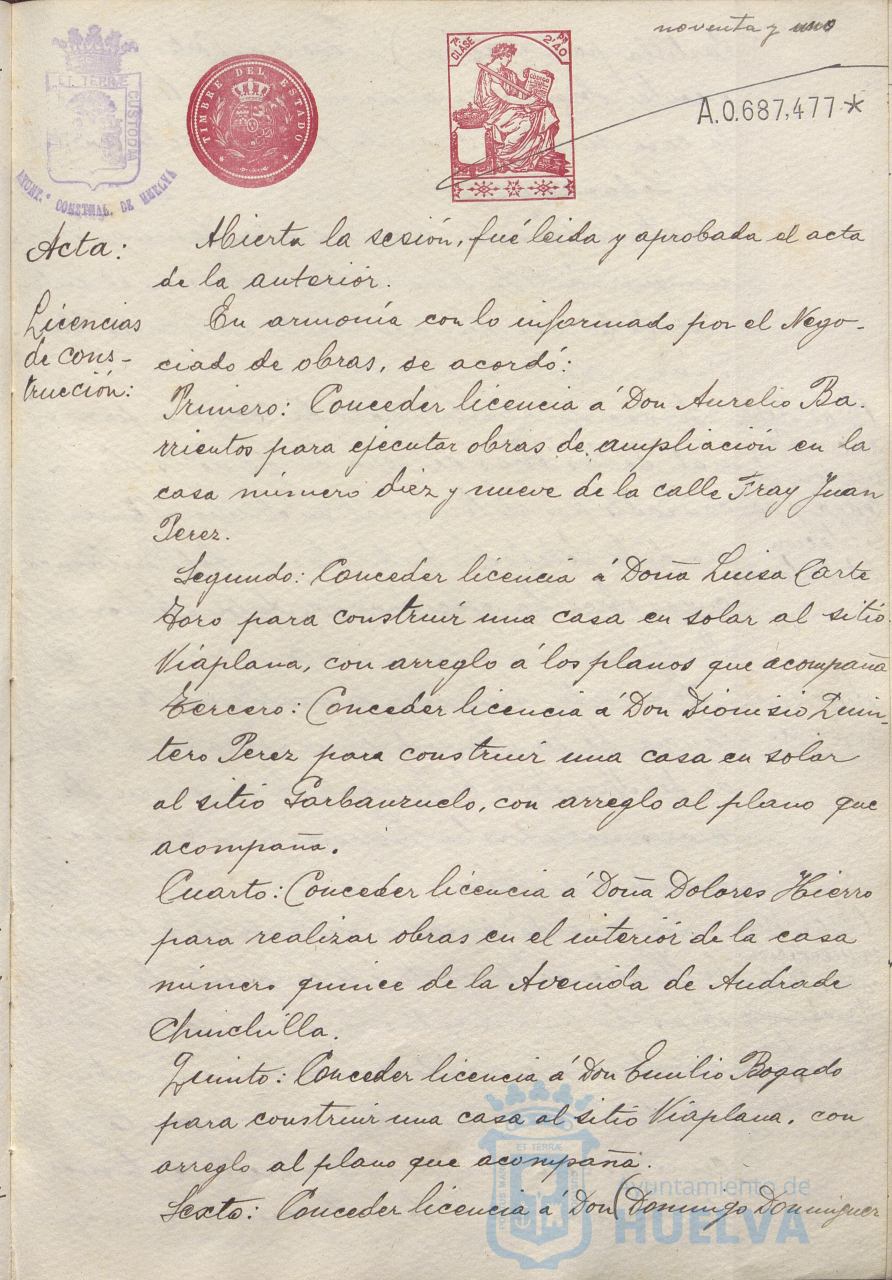 noventa y uno
ET TERRÆ
CUSTODIA
AYUNT.º CONSTNAL. DE HUELVA
TIMBRE DEL ESTADO
7ª CLASE
2'40
A.0.687,477*
Acta:
Abierta la sesión, fué leida y aprobada el acta
de la anterior.
Licencias
de cons-
trucción:
En armonía con lo informado por el Nego-
ciado de obras, se acordó:
Primero: Conceder licencia á Don Aurelio Ba-
rrientos para ejecutar obras de ampliación en la
casa número diez y nueve de la calle Fray Juan
Perez.
Segundo: Conceder licencia á Doña Luisa Carte
Toro para construir una casa en solar al sitio
Viaplana, con arreglo á los planos que acompaña
Tercero: Conceder licencia á Don Dionisio Quin-
tero Perez para construir una casa en solar
al sitio Garbanzuelo, con arreglo al plano que
acompaña.
Cuarto: Conceder licencia á Doña Dolores Hierro
para realizar obras en el interiór de la casa
número quince de la Avenida de Andrade
Chinchilla.
Quinto: Conceder licencia á Don Emilio Bogado
para construir una casa al sitio Viaplana, con
arreglo al plano que acompaña.
Sexto: Conceder licencia á Don Domingo Dominguez
ET TERRÆ
Ayuntamiento de
HUELVA